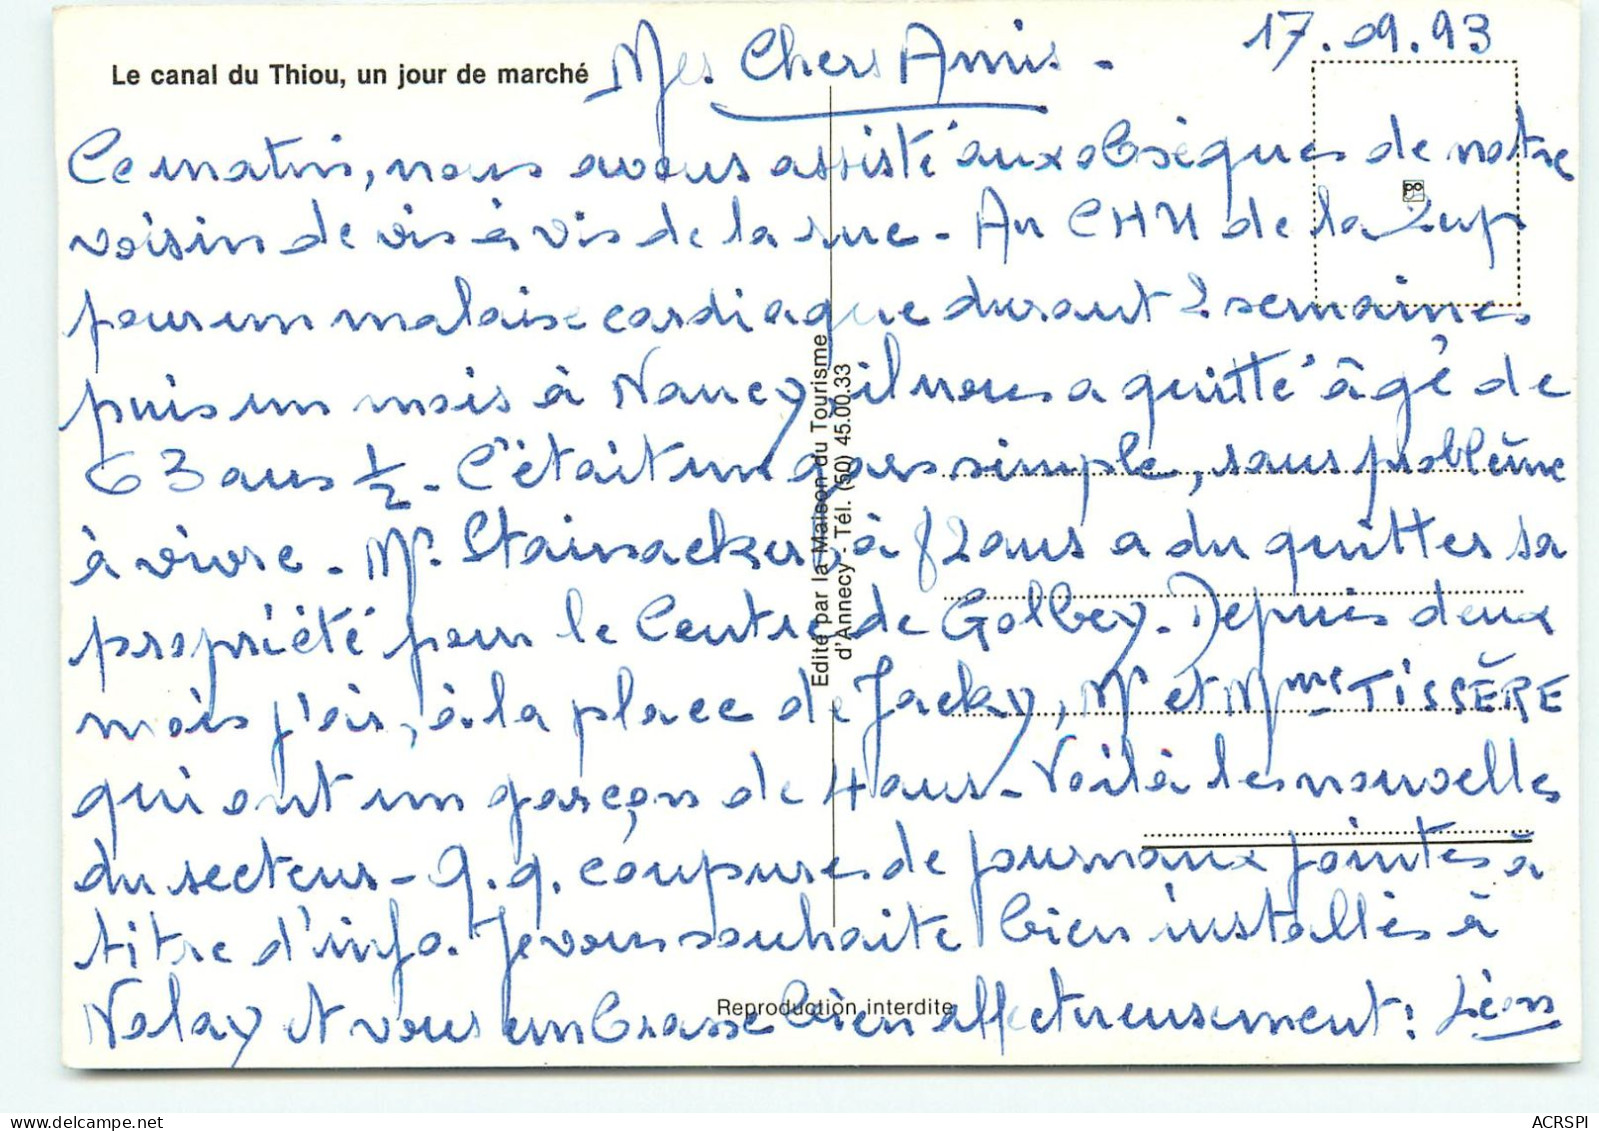 17.09.93
Le canal du Thiou, un jour de marché
Mes Chers Amis -
Ce matin, nous avons assisté aux obsèques de notre
voisin de vis à vis de la rue - Au CHU de la
pour un malaise cardiaque durant 2 semaines
puis un mois à Nancy il nous a quitté âgé de
63 ans 1/2 - C'était un gars simple, sans problème
à vivre - Mr Stainacker à 82 ans a du quitter sa
propriété pour le Centre de Golbey - Depuis deux
mois j'ai, à la place de Jacky, Mr et Mme TISSÈRE
qui ont un garçon de 4 ans - Voilà les nouvelles
du secteur - q.q. coupures de journaux jointes à
titre d'info. Je vous souhaite bien installés à
Nolay et vous embrasse bien affectueusement : Léon
Edité par la Maison du Tourisme
d'Annecy - Tél. (50) 45.00.33
Reproduction interdite
ACRSPI